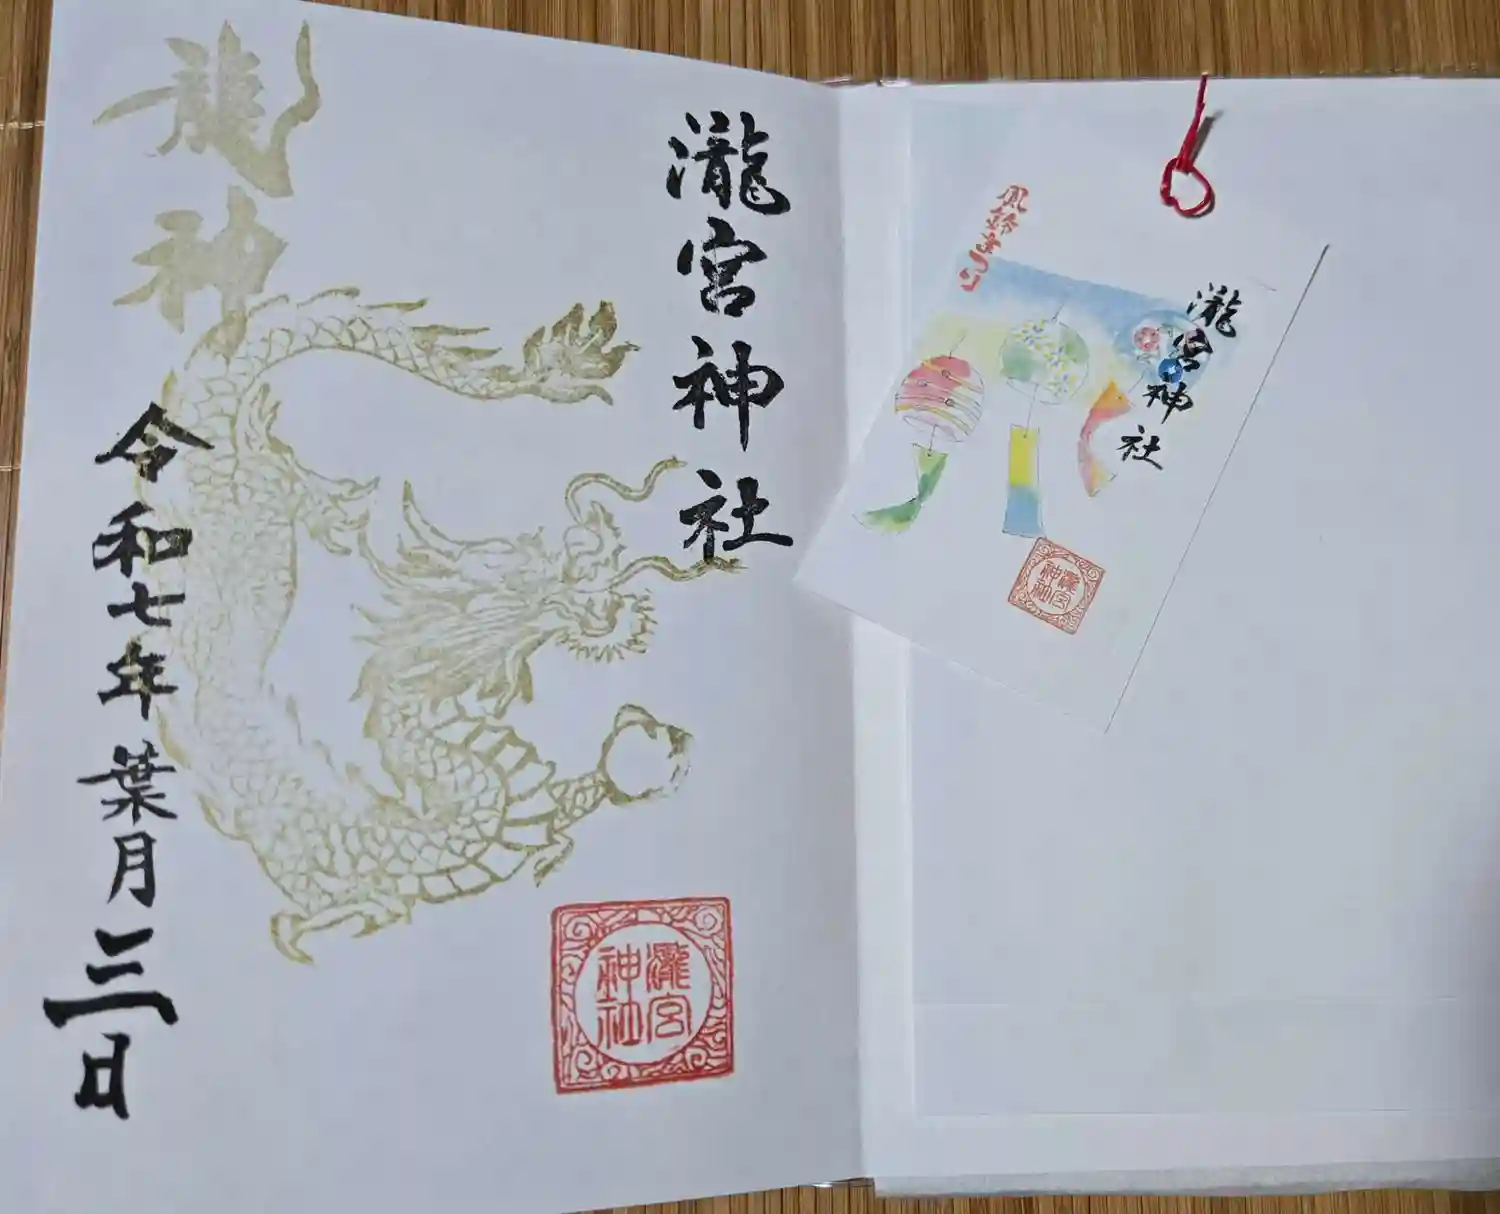 瀧宮神社
龍神
令和七年葉月三日
瀧宮
神社
瀧宮神社
風鈴まつり
瀧宮
神社